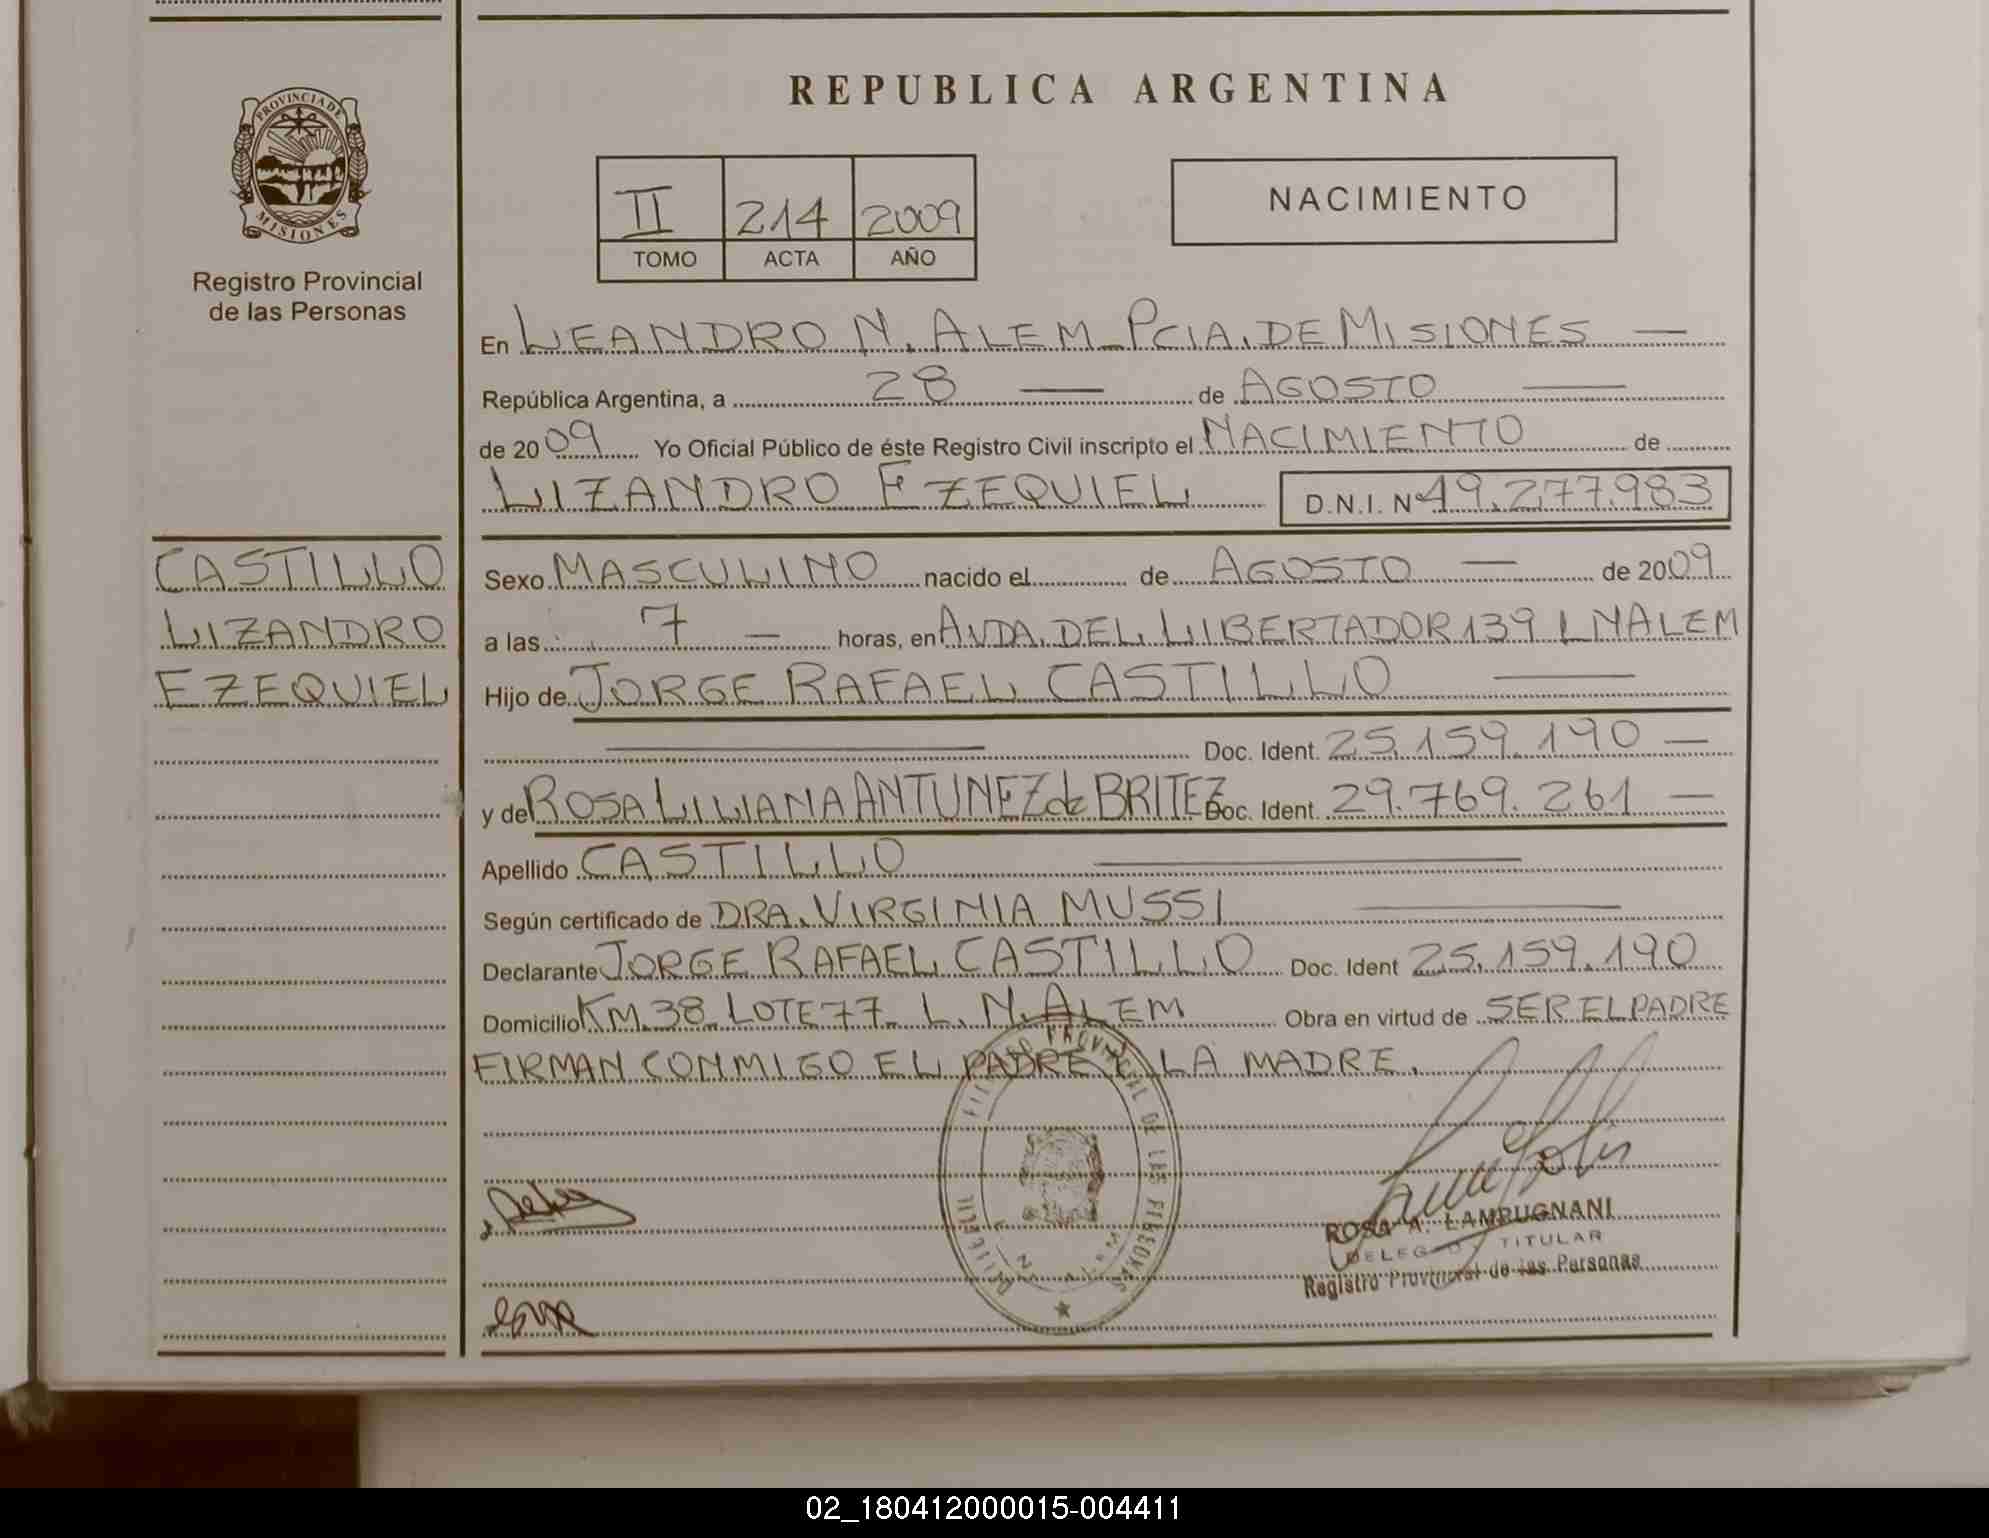 REPUBLICA ARGENTINA
PROVINCIA DE
MISIONES
Registro Provincial
de las Personas
II 214 2009
TOMO ACTA AÑO
NACIMIENTO
En LEANDRO N. ALEM - PCIA. DE MISIONES —
República Argentina, a 28 — de AGOSTO —
de 2009 Yo Oficial Público de éste Registro Civil inscripto el NACIMIENTO de
LIZANDRO EZEQUIEL D.N.I. Nº 49.277.983
CASTILLO
LIZANDRO
EZEQUIEL
Sexo MASCULINO nacido el de AGOSTO — de 2009
a las 7 — horas, en AVDA. DEL LIBERTADOR 139 L N ALEM
Hijo de JORGE RAFAEL CASTILLO —
— Doc. Ident. 25.159.190 —
y de ROSA LILIANA ANTUNEZ de BRITEZ Doc. Ident. 29.769.261 —
Apellido CASTILLO —
Según certificado de DRA. VIRGINIA MUSSI —
Declarante JORGE RAFAEL CASTILLO Doc. Ident 25.159.190
Domicilio KM.38 LOTE 77 L. N. ALEM Obra en virtud de SER EL PADRE
FIRMAN CONMIGO EL PADRE Y LA MADRE.
PROVINCIAL DE LAS PERSONAS
ROSA A. LAMPUGNANI
DELEGADA TITULAR
Registro Provincial de las Personas
02_180412000015-004411